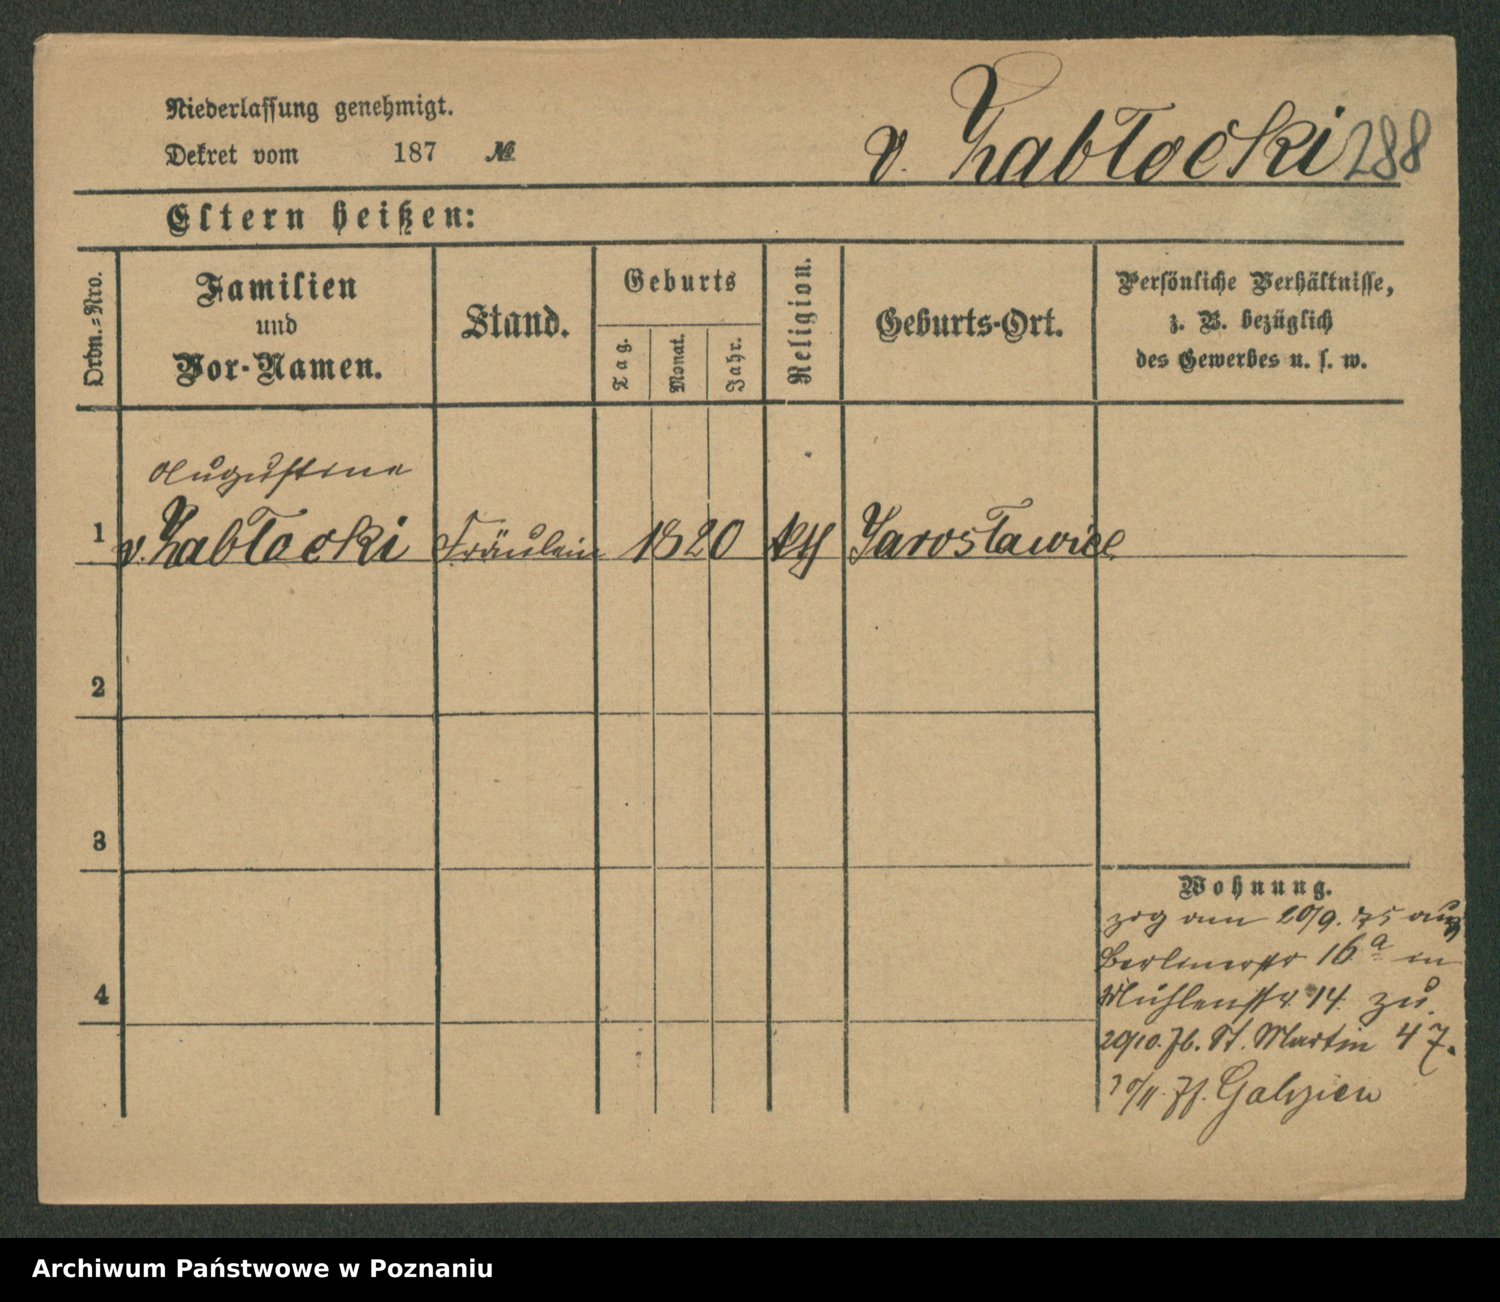 Niederlassung genehmigt.
Dekret vom 187 №
v. Zabłocki 288
Eltern heißen:
Ordn.-Nro.
Familien
und
Vor-Namen.
Stand.
Geburts
Tag.
Monat.
Jahr.
Religion.
Geburts-Ort.
Persönliche Verhältnisse,
z. B. bezüglich
des Gewerbes u. s. w.
Augustine
1 v. Zabłocki Fräulein 1820 kth Jarosławice
2
3
4
Wohnung.
zog am 20/9. 75 aus
Berlinerstr 16a in
Mühlenstr. 14. zu.
29/10. 76. St. Martin 47.
/11. 77. Galizien
Archiwum Państwowe w Poznaniu